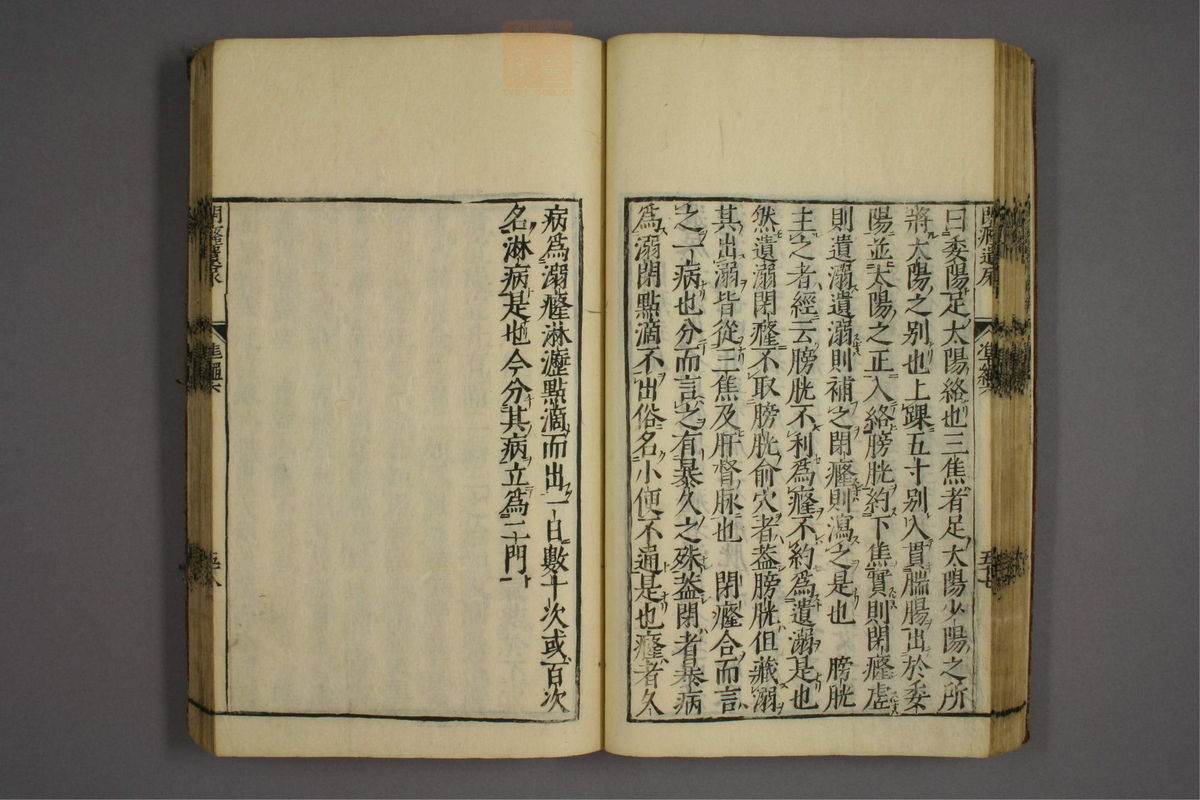 曰委陽足太陽絡也三焦者足太陽少陽之所
將太陽之别也上踝五寸别入貫腨腸出於委
陽並太陽之正入絡膀胱約下焦實則閉癃虛
則遺溺遺溺則補之閉癃則瀉之是也　膀胱
主之者經云膀胱不利爲癃不約爲遺溺是也
然遺溺閉癃不取膀胱俞穴者葢膀胱但藏溺
其出溺皆從三焦及肝督脉也　閉癃合而言
之一病也分而言之有暴久之殊葢閉者暴病
爲溺閉點滴不出俗名小便不通是也癃者久
病爲溺癃淋瀝點滴而出一日數十次或百次
名淋病是也今分其病立爲二門
閉癃遺尿
準繩六
五十八